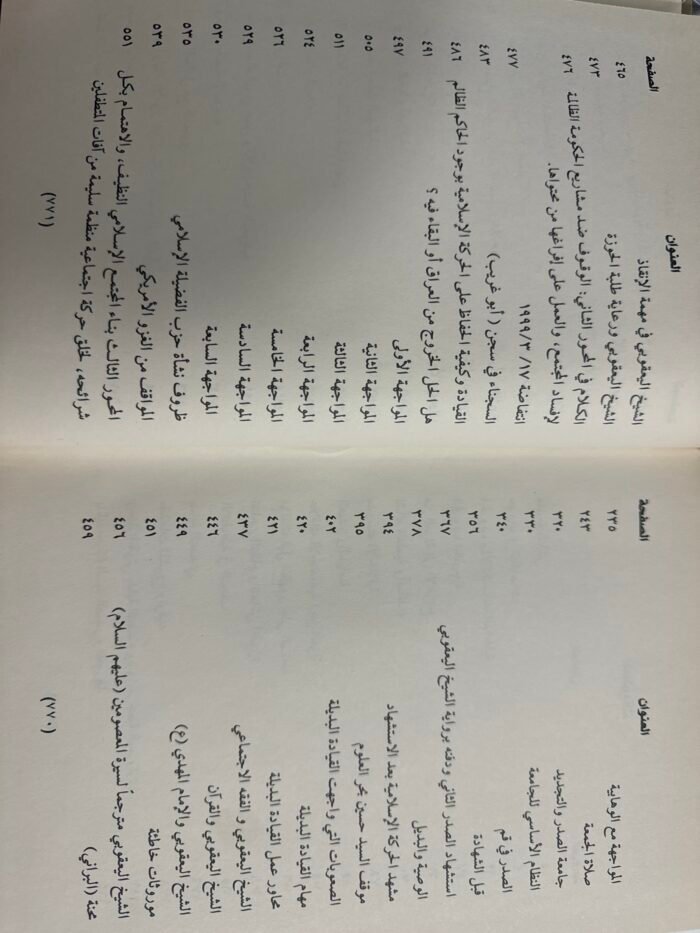 العنوان الصفحة
المواجهة مع الوهابية ٢٣٥
صلاة الجمعة ٢٤٣
جامعة الصدر والتجديد ٣٢٠
النظام الأساسي للجامعة ٣٣٠
الصدر في قم ٣٤٠
قبل الشهادة ٣٥٦
استشهاد الصدر الثاني ودفنه برواية الشيخ اليعقوبي ٣٦٧
الوصية والبديل ٣٧٨
مشهد الحركة الإسلامية بعد الاستشهاد ٣٩٤
موقف السيد حسين بحر العلوم ٣٩٥
الصعوبات التي واجهت القيادة البديلة ٤٠٢
مهام القيادة البديلة ٤٢٠
محاور عمل القيادة البديلة ٤٢١
الشيخ اليعقوبي و الفقه الاجتماعي ٤٣٧
الشيخ اليعقوبي والقرآن ٤٤٦
الشيخ اليعقوبي والإمام المهدي (ع) ٤٤٩
موروثات خاطئة ٤٥١
الشيخ اليعقوبي مترجماً لسيرة المعصومين (عليهم السلام) ٤٥٦
محنة (البراني) ٤٥٩
(٧٧٠)
العنوان الصفحة
الشيخ اليعقوبي في مهمة الإنقاذ ٤٦٥
الشيخ اليعقوبي ورعاية طلبة الحوزة ٤٧٣
الكلام في المحور الثاني: الوقوف ضد مشاريع الحكومة الظالمة ٤٧٦
لإفساد المجتمع، والعمل على إفراغها من محتواها.
انتفاضة ١٧/ ٣/ ١٩٩٩ ٤٧٧
السجناء في سجن (أبو غريب) ٤٨٣
القيادة وكيفية الحفاظ على الحركة الإسلامية بوجود الحاكم الظالم ٤٨٦
هل الحل الخروج من العراق أو البقاء فيه ؟ ٤٩١
المواجهة الأولى ٤٩٧
المواجهة الثانية ٥٠٥
المواجهة الثالثة ٥١١
المواجهة الرابعة ٥٢٤
المواجهة الخامسة ٥٢٦
المواجهة السادسة ٥٢٩
المواجهة السابعة ٥٣٠
ظروف نشأة حزب الفضيلة الإسلامي ٥٣٥
المواقف من الغزو الأمريكي ٥٣٩
المحور الثالث بناء المجتمع الإسلامي النظيف، والاهتمام بكل ٥٥١
شرائحه، لخلق حركة اجتماعية منظمة سليمة من آفات المتطفلين
(٧٧١)